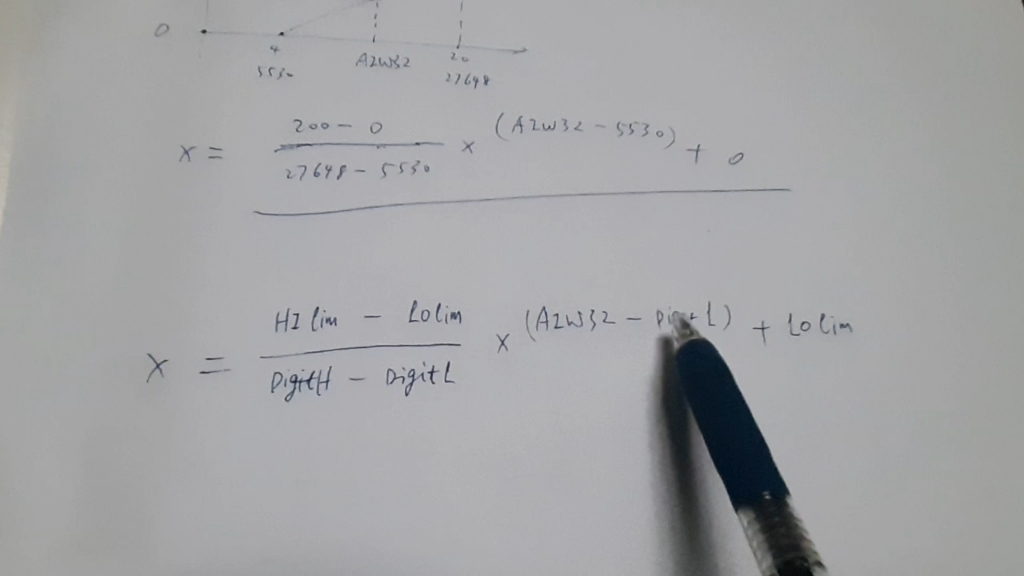 0
4 A2W32 20
5530 27648
x = 200 - 0 / 27648 - 5530 × (A2W32 - 5530) + 0
x = HIlim - LOlim / DigitH - DigitL × (A2W32 - DigitL) + LOlim